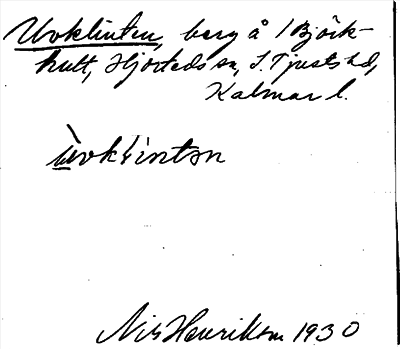 Uvoklinten, berg å 1 Björk-
hult, Hjorteds sn, S. Tjusts hd,
Kalmar l.
ùvoklintən
Nils Henrikson 1930